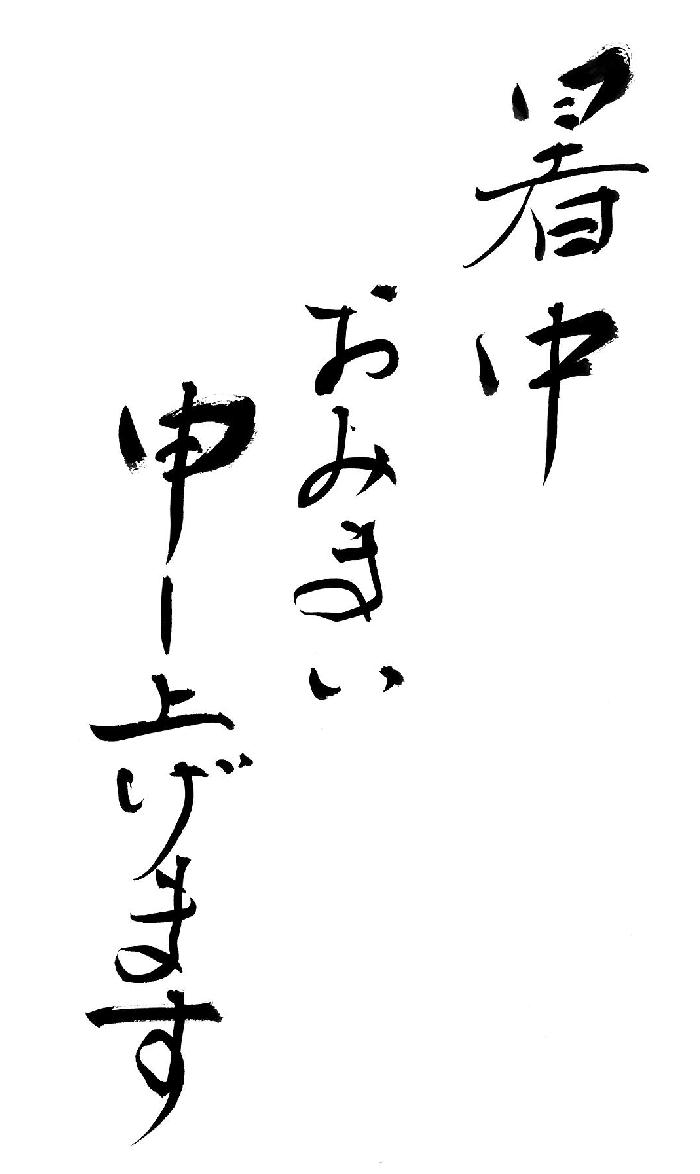 暑中
おみまい
申し上げます